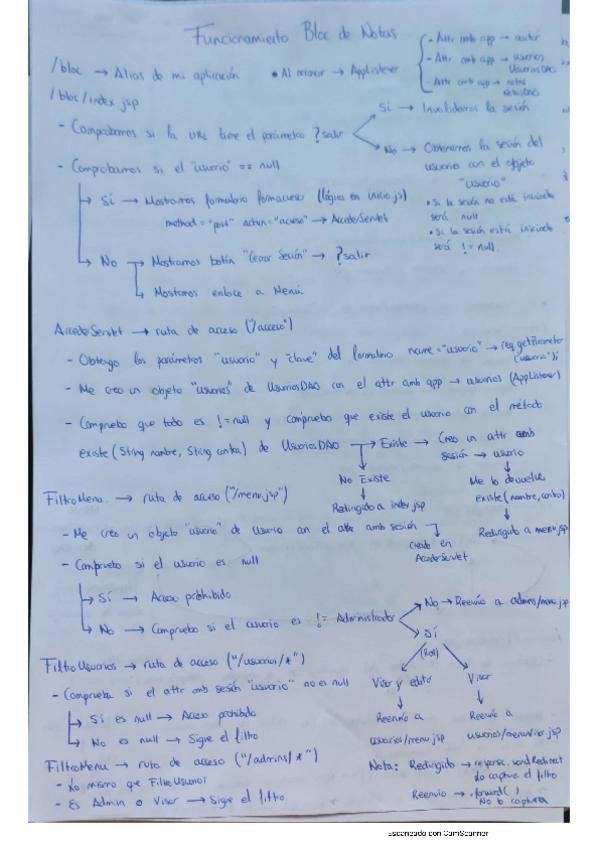 Funcionamiento Bloc de Notas
/bloc → Alias de mi aplicación
• Al arrancar → AppListener
- Attr amb app → autor
- Attr amb app → usuarios UsuariosDAO
- Attr amb app → notas NotasDAO
/bloc/index.jsp
- Comprobamos si la URL tiene el parámetro ?salir
Sí → Invalidamos la sesión
No → Obtenemos la sesión del
usuario con el objeto
"usuario"
• Si la sesión no está iniciada
será null
• Si la sesión está iniciada
será != null.
- Comprobamos si el "usuario" == null
Sí → Mostramos formulario formacceso (lógica en inicio.js)
method="post" action="acceso" → AccederServlet
No → Mostramos botón "Cerrar Sesión" → ?salir
Mostramos enlace a Menú
AccederServlet → ruta de acceso ("/acceso")
- Obtengo los parámetros "usuario" y "clave" del formulario name="usuario" → req.getParameter
("usuario");
- Me creo un objeto "usuarios" de UsuariosDAO con el attr amb app → usuarios (AppListener)
- Compruebo que todo es != null y compruebo que existe el usuario con el método
existe(String nombre, String contra) de UsuariosDAO → Existe → Creo un attr amb
sesión → usuario
No Existe
Redirigido a index.jsp
Me lo devuelve
existe(nombre, contra)
Redirigido a menu.jsp
FiltroMenu → ruta de acceso ("/menu.jsp")
- Me creo un objeto "usuario" de Usuario con el attr amb sesión
Creado en
AccederServlet.
- Compruebo si el usuario es null
Sí → Acceso prohibido
No → Compruebo si el usuario es != Administrador
No → Reenvío a admins/menu.jsp
Sí
(Rol)
Visor y editor
Visor
Reenvío a
usuarios/menu.jsp
Reenvío a
usuarios/menuVisor.jsp
FiltroUsuarios → ruta de acceso ("/usuarios/*")
- Comprueba si el attr amb sesión "usuario" no es null
Sí es null → Acceso prohibido
No es null → Sigue el filtro
FiltroMenu → ruta de acceso ("/admins/*")
- Lo mismo que FiltroUsuario
- Es Admin o Visor → Sigue el filtro.
Nota: Redirigido → response.sendRedirect
Lo captura el filtro
Reenvío → .forward()
No lo captura
Escaneado con CamScanner